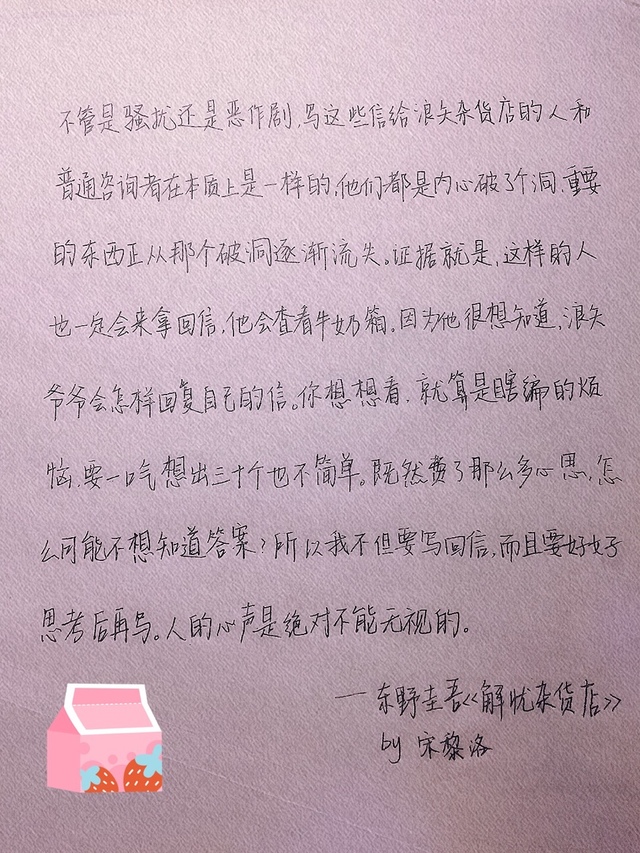 不管是骚扰还是恶作剧,写这些信给浪矢杂货店的人和
普通咨询者在本质上是一样的,他们都是内心破了个洞,重要
的东西正从那个破洞逐渐流失。证据就是,这样的人
也一定会来拿回信,他会查看牛奶箱。因为他很想知道,浪矢
爷爷会怎样回复自己的信。你想想看,就算是瞎编的烦
恼,要一口气想出三十个也不简单。既然费了那么多心思,怎
么可能不想知道答案?所以我不但要写回信,而且要好好
思考后再写。人的心声是绝对不能无视的。
——东野圭吾《解忧杂货店》
by 宋黎洛